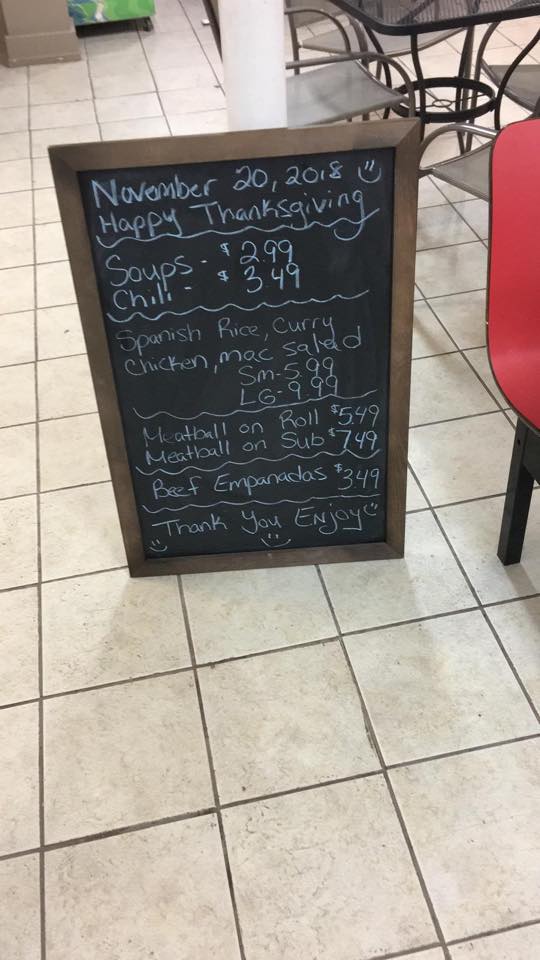 November 20, 2018
Happy Thanksgiving
Soups - $2.99
Chili - $3.49
Spanish Rice, Curry
Chicken, mac salad
Sm-5.99
LG-9.99
Meatball on Roll $5.49
Meatball on Sub $7.49
Beef Empanadas $3.49
Thank You Enjoy